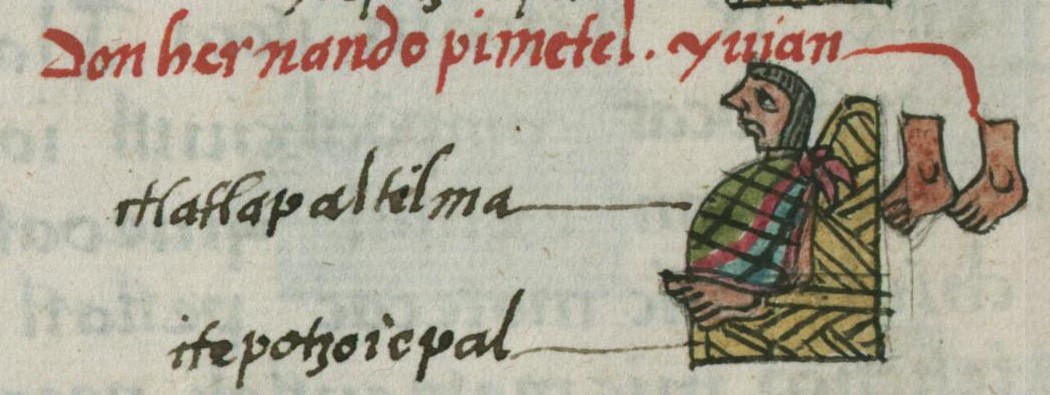 Don hernando pimetel. yuian
itlatlapaltilma
itepotzoicpal